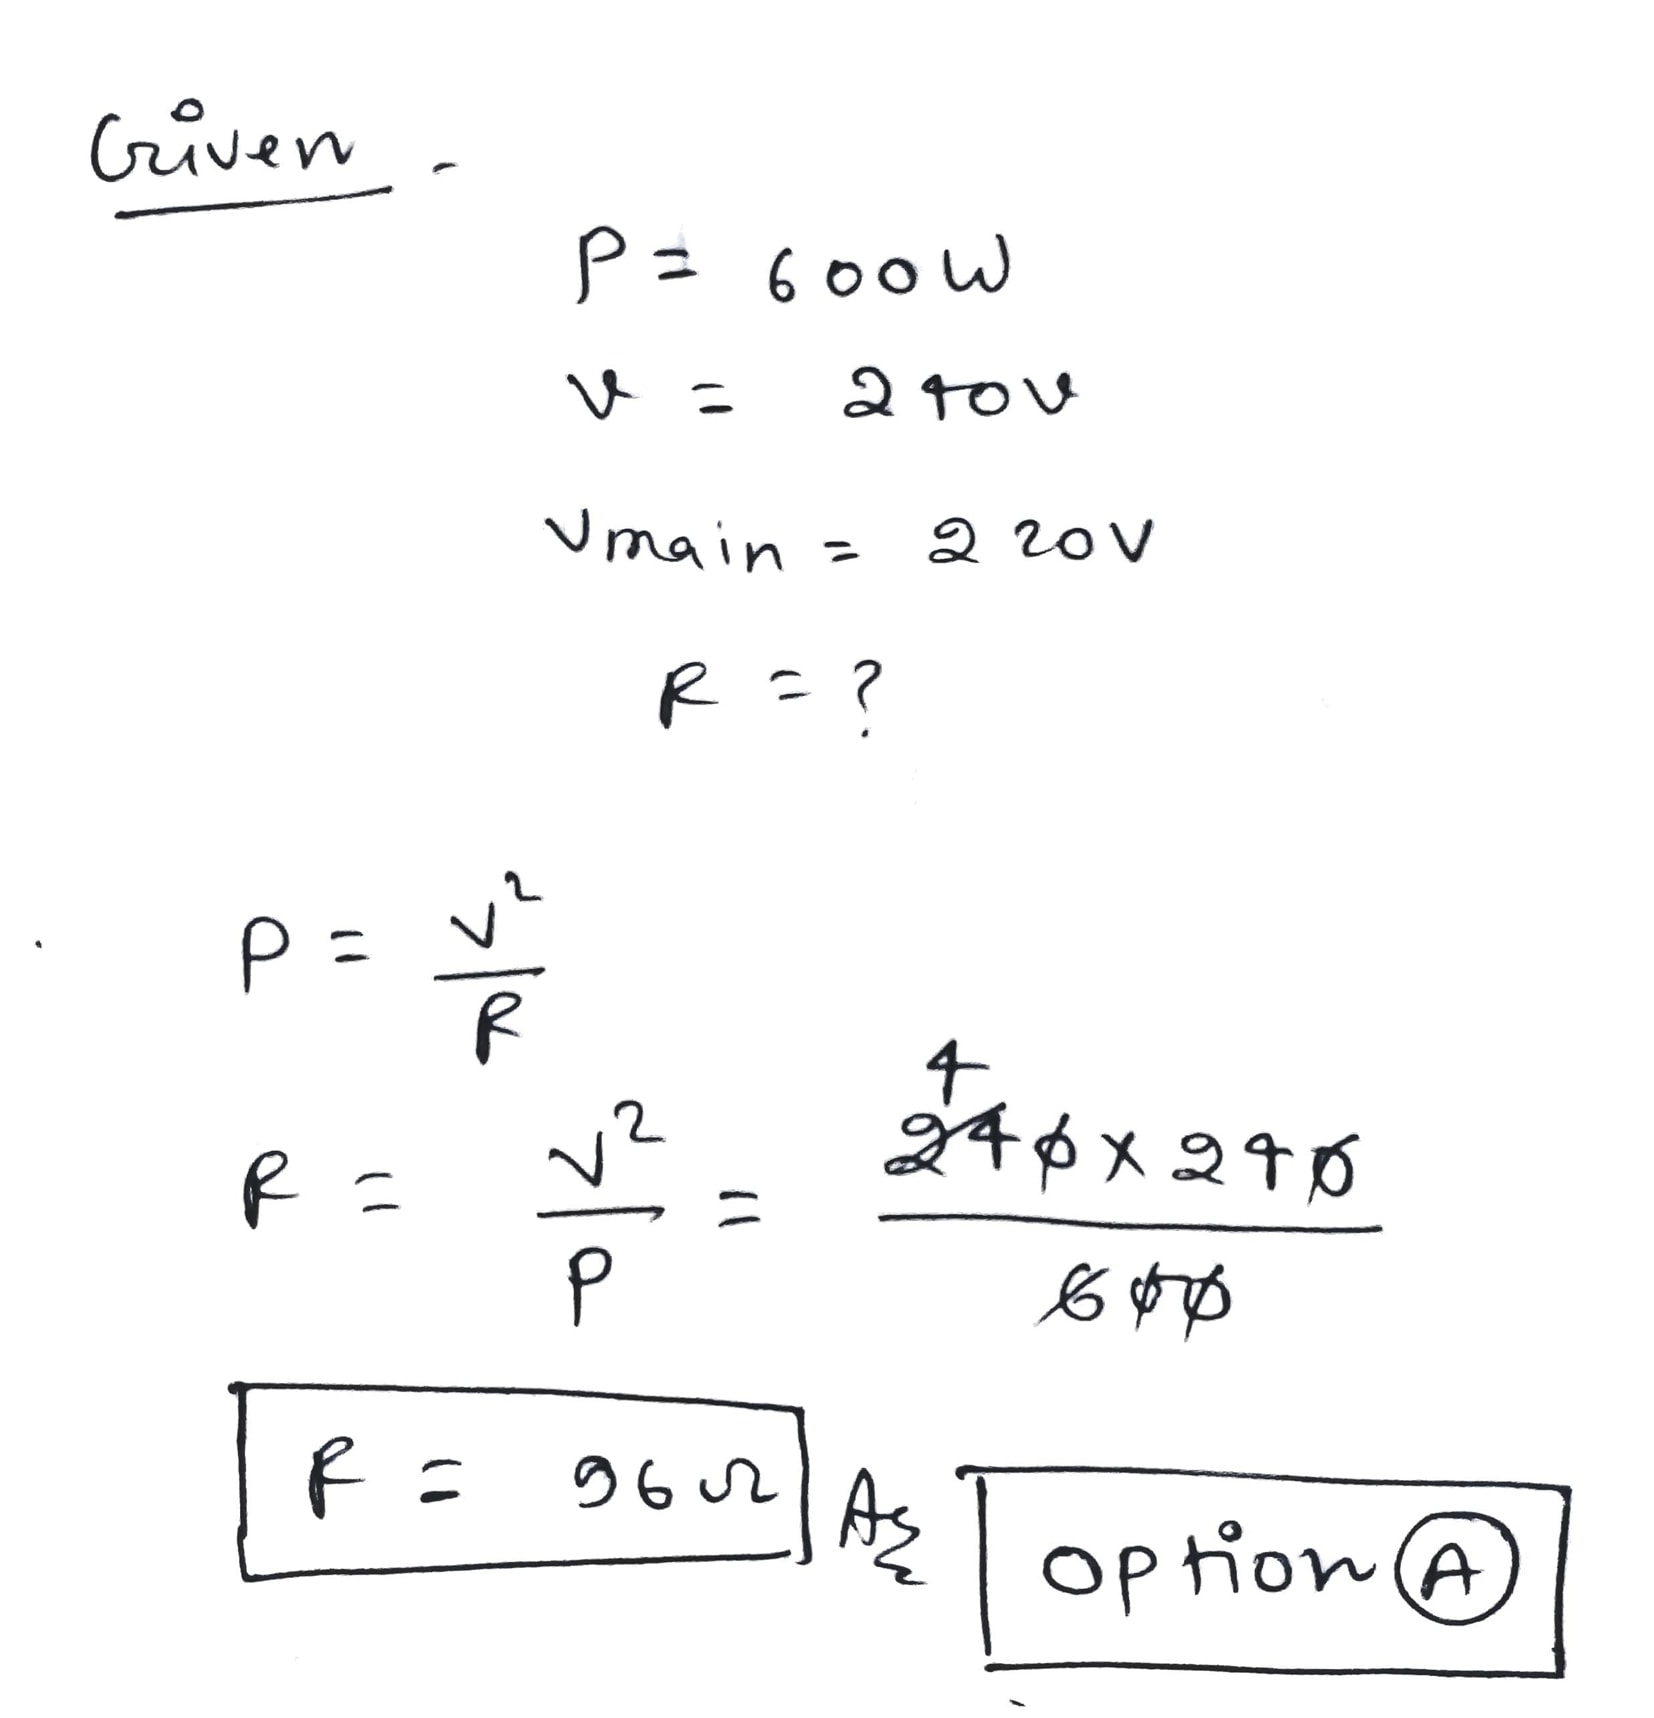 Given -
P = 600W
V = 240V
Vmain = 220V
R = ?
P = V²/R
R = V²/P = 240 x 240 / 600
4
R = 96Ω Ans
option A